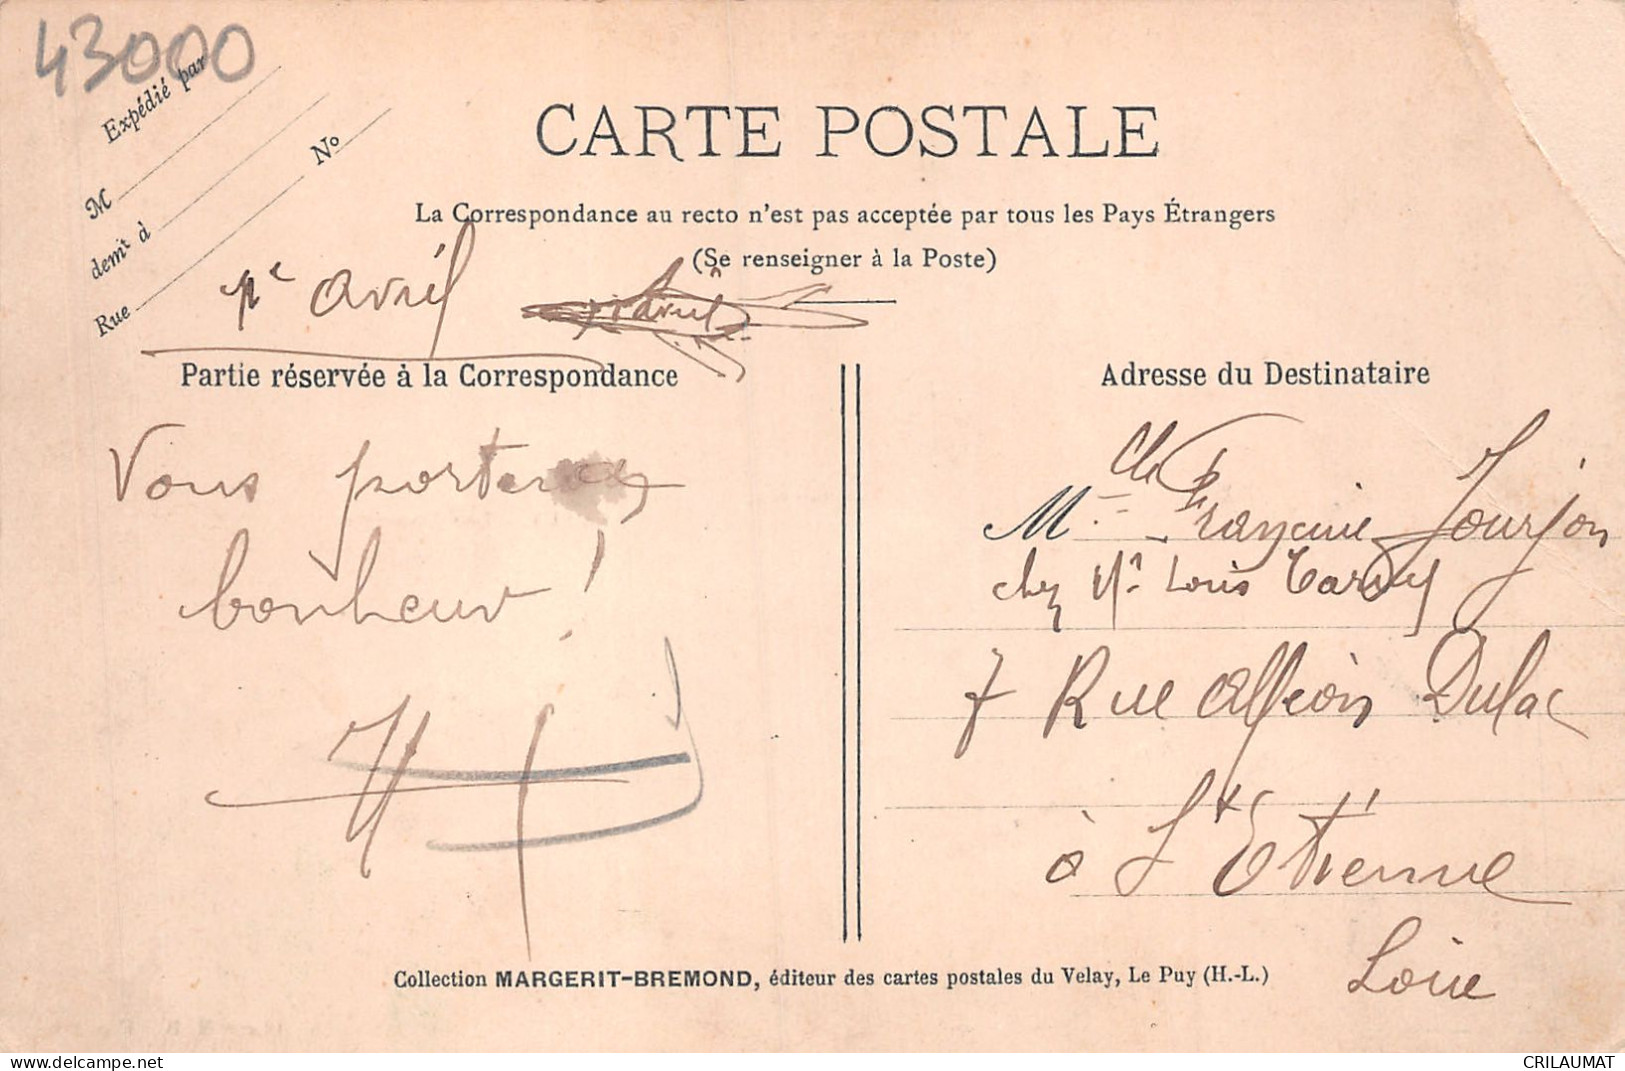 43000
Expédié par
M
demt d
Rue
No
CARTE POSTALE
La Correspondance au recto n'est pas acceptée par tous les Pays Étrangers
(Se renseigner à la Poste)
avril
Partie réservée à la Correspondance
Vous porteras
bonheur !
Adresse du Destinataire
Mlle Francine Jourjon
chez Mr Louis Tardy
7 Rue Alfeóis Dulac
à St Etienne
Loire
Collection MARGERIT-BREMOND, éditeur des cartes postales du Velay, Le Puy (H.-L.)
www.delcampe.net
CRILAUMAT